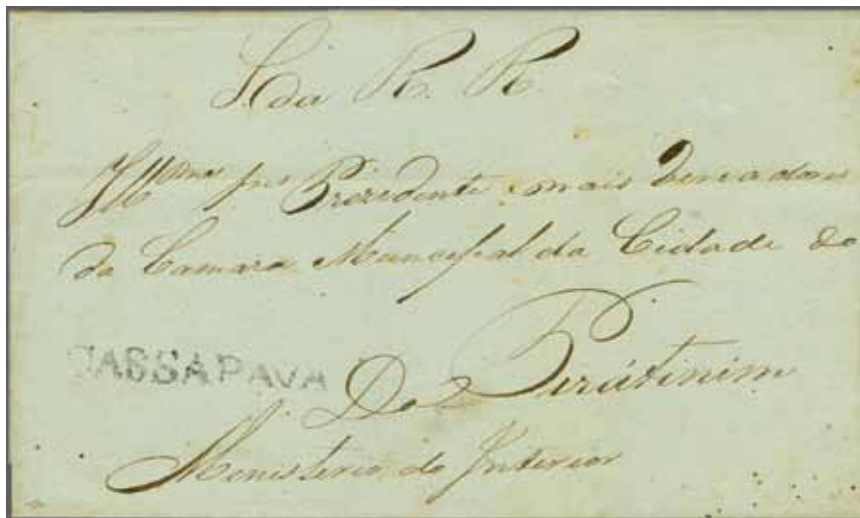 S. da R. R.
Ill.mos Snr.s Prezidente e mais Veriadores
da Camara Municipal da Cidade de
CASSAPAVA
De Piratinim
Menisterio do Interior